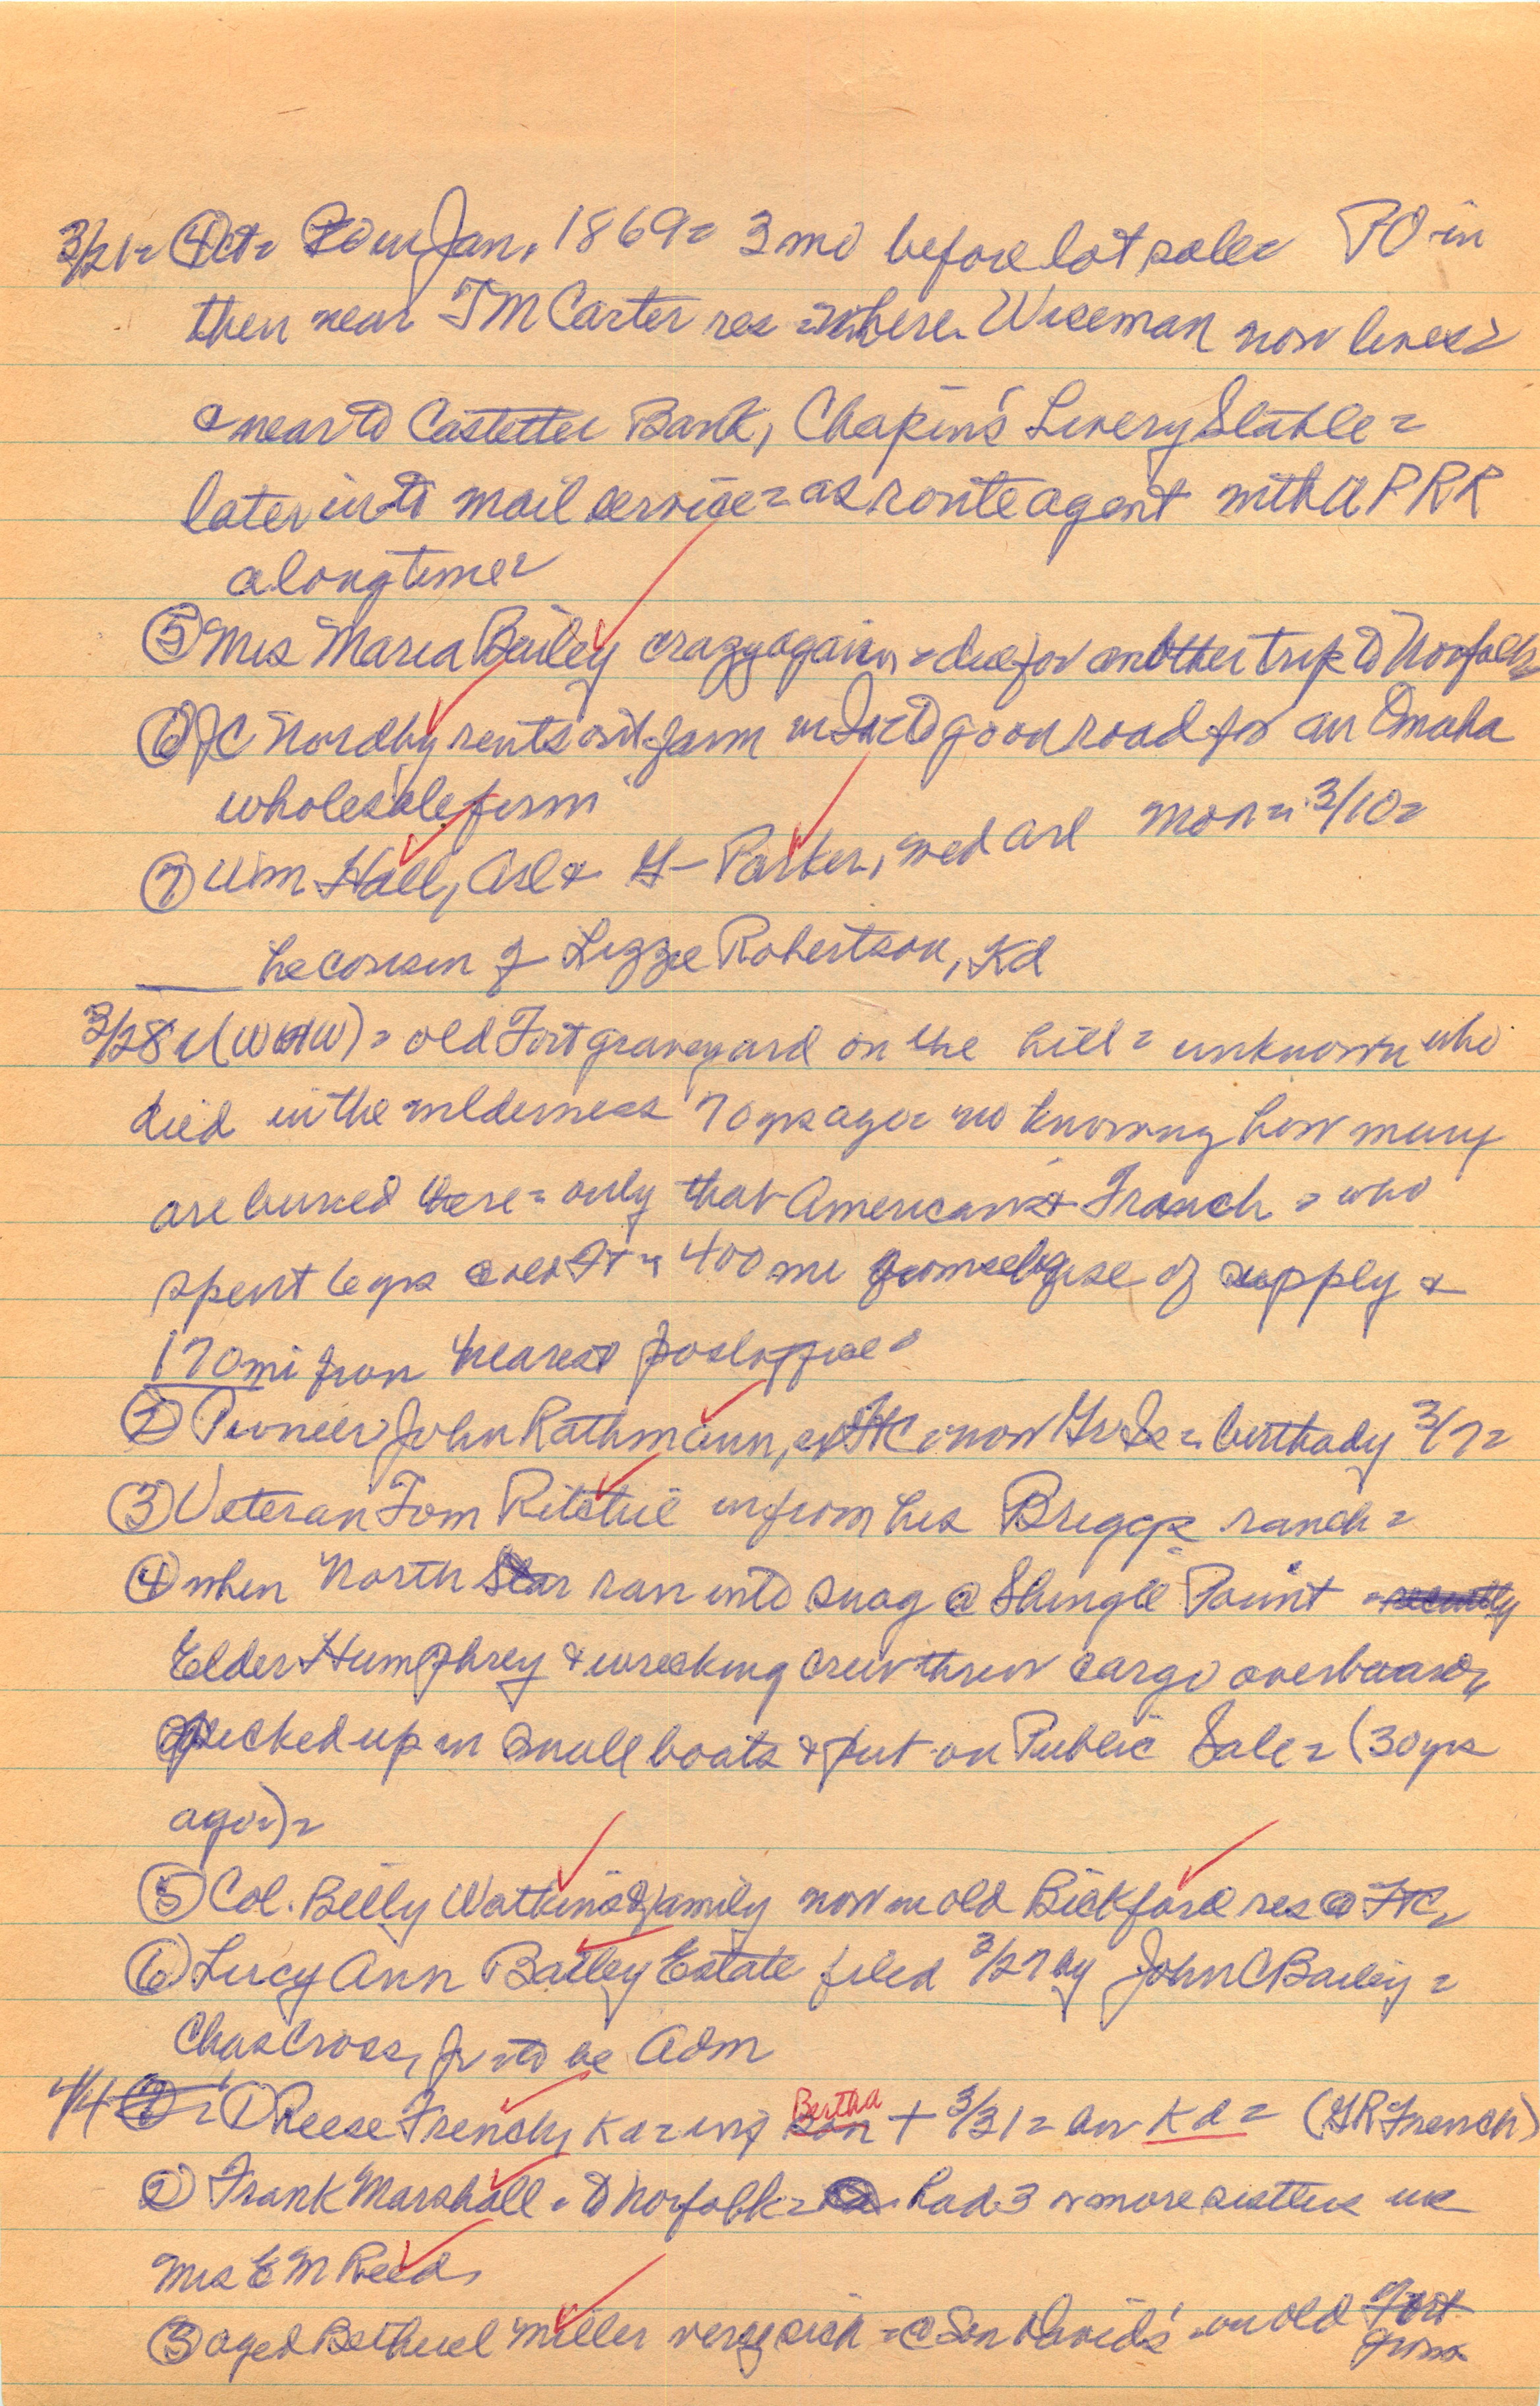 3/21= ④ct= PO in Jan, 1869= 3 mo before lot sale= PO in
then near TM Carter res = where Wiseman now lives=
& near to Castetter Bank, Chapin's Livery Stable =
later into mail service = as route agent with UPRR
a long time=
⑤ Mrs Maria Bailey crazy again = due for another trip to Norfolk
⑥ JC Nordby rents out farm to go on road for an Omaha
wholesale firm
⑦ Wm Hall, Arl & G- Parker, wed Arl Mon = 3/10=
he cousin of Lizzie Robertson, Kd
3/28 = (WHW) = old Fort graveyard on the hill = unknown who
died in the wilderness 70 yrs ago= no knowing how many
are buried there = only that Americans & French = who
spent 6 yrs 400 mi from base of supply &
170 mi from nearest postoffice=
② Pioneer John Rathmann, ex FtC = now = birthday 3/7=
③ Veteran Tom Ritchie in from his Briggs ranch =
④ when North Star ran into snag @ Shingle Point = recently
Elder Humphrey & wrecking crew threw cargo overboard,
picked up in small boats & put on Public Sale = (30 yrs
ago=)=
⑤ Col. Billy Watkins & family now in old Bickford res @ FtC,
⑥ Lucy Ann Bailey Estate filed 3/27 by John C Bailey =
Chas Cross, Jr = to be Adm
4/4 = ① Reese French, Ka = inf son Bertha + 3/31 = bu Kd = (GR French)
② Frank Marshall = to Norfolk = had 3 or more sisters
Mrs E M Reed,
③ aged Bethuel Miller very sick = @ Son David's = on old Fort